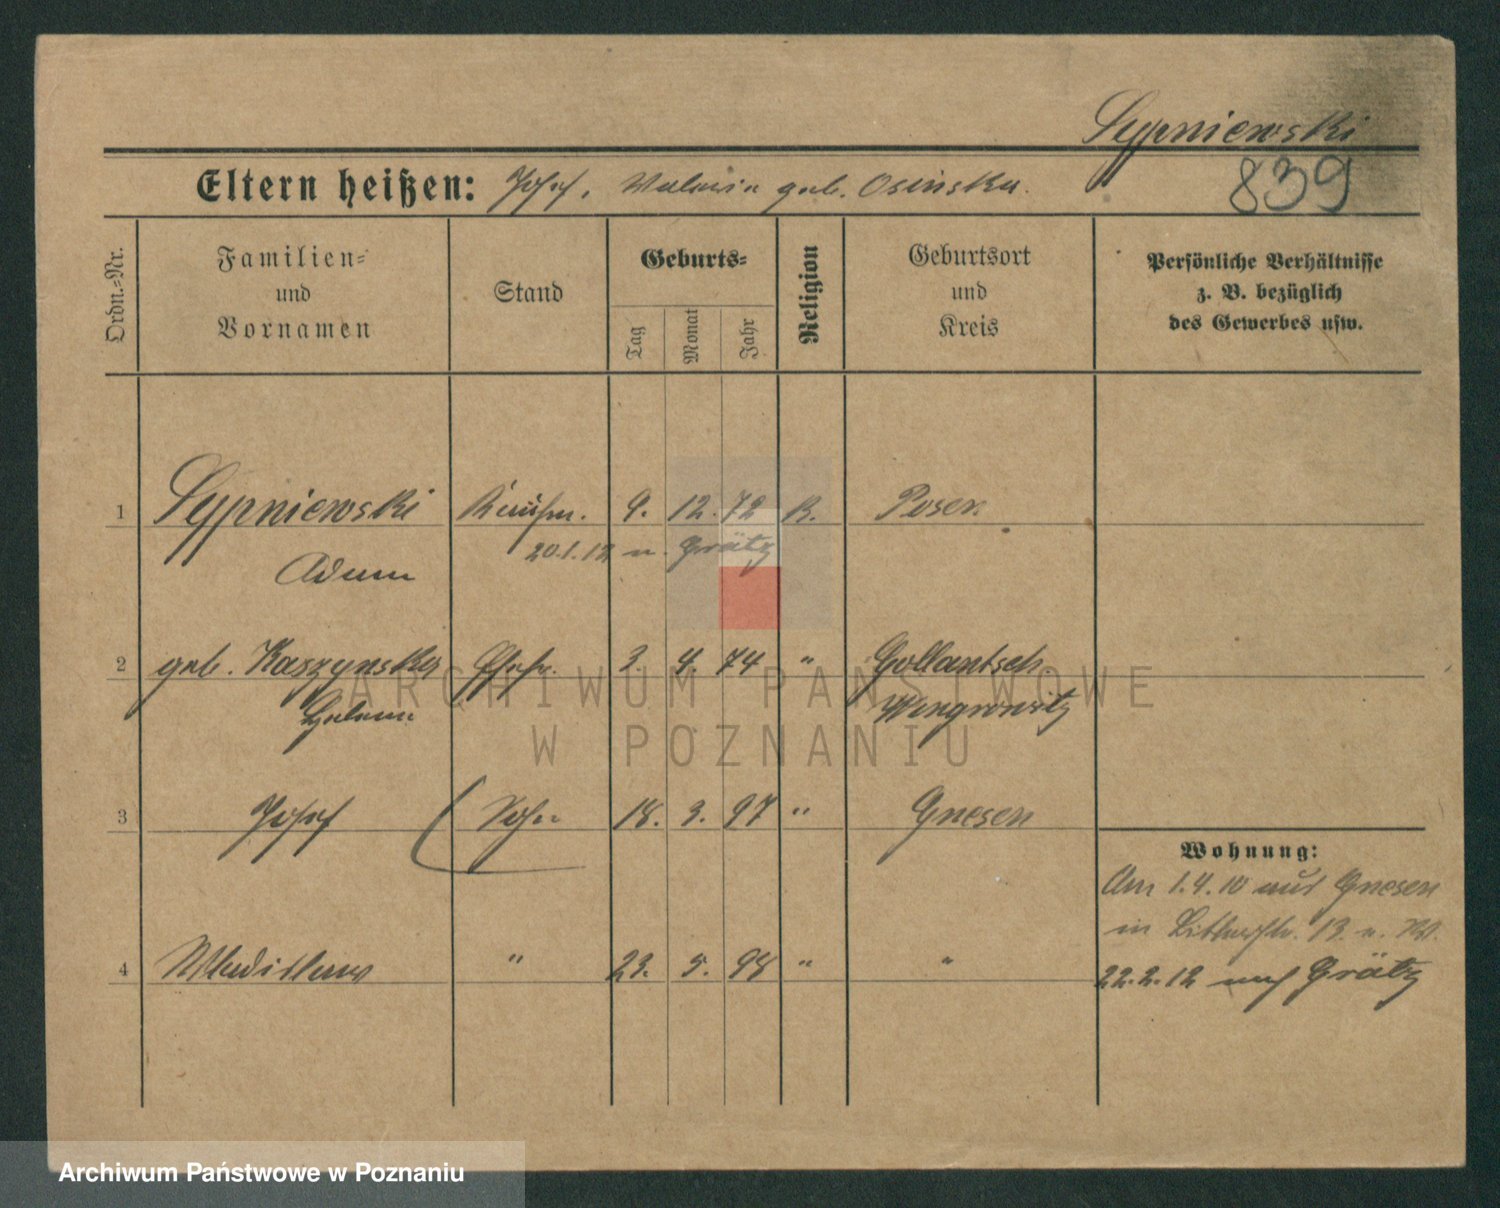 Sypniewski
839
Eltern heißen: Josef, Valeria geb. Osinska.
Ordn.-Nr.
Familien-
und
Vornamen
Stand
Geburts-
Tag
Monat
Jahr
Religion
Geburtsort
und
Kreis
Persönliche Verhältnisse
z. B. bezüglich
des Gewerbes usw.
1 Sypniewski Kaufm. 9. 12. 72 K. Posen
20.1.12 n. Grätz
Adam
2 geb. Kaszynska Ehefr. 3. 4. 74 " Gollantsch
Helene Wongrowitz
3 Josef Sohn 18. 3. 97 " Gnesen
Wohnung:
Am 1.4.10 aus Gnesen
in 13
4 Wladislaw " 23. 5. 98 " "
22.2.12 nach Grätz
ARCHIWUM PAŃSTWOWE
W POZNANIU
Archiwum Państwowe w Poznaniu